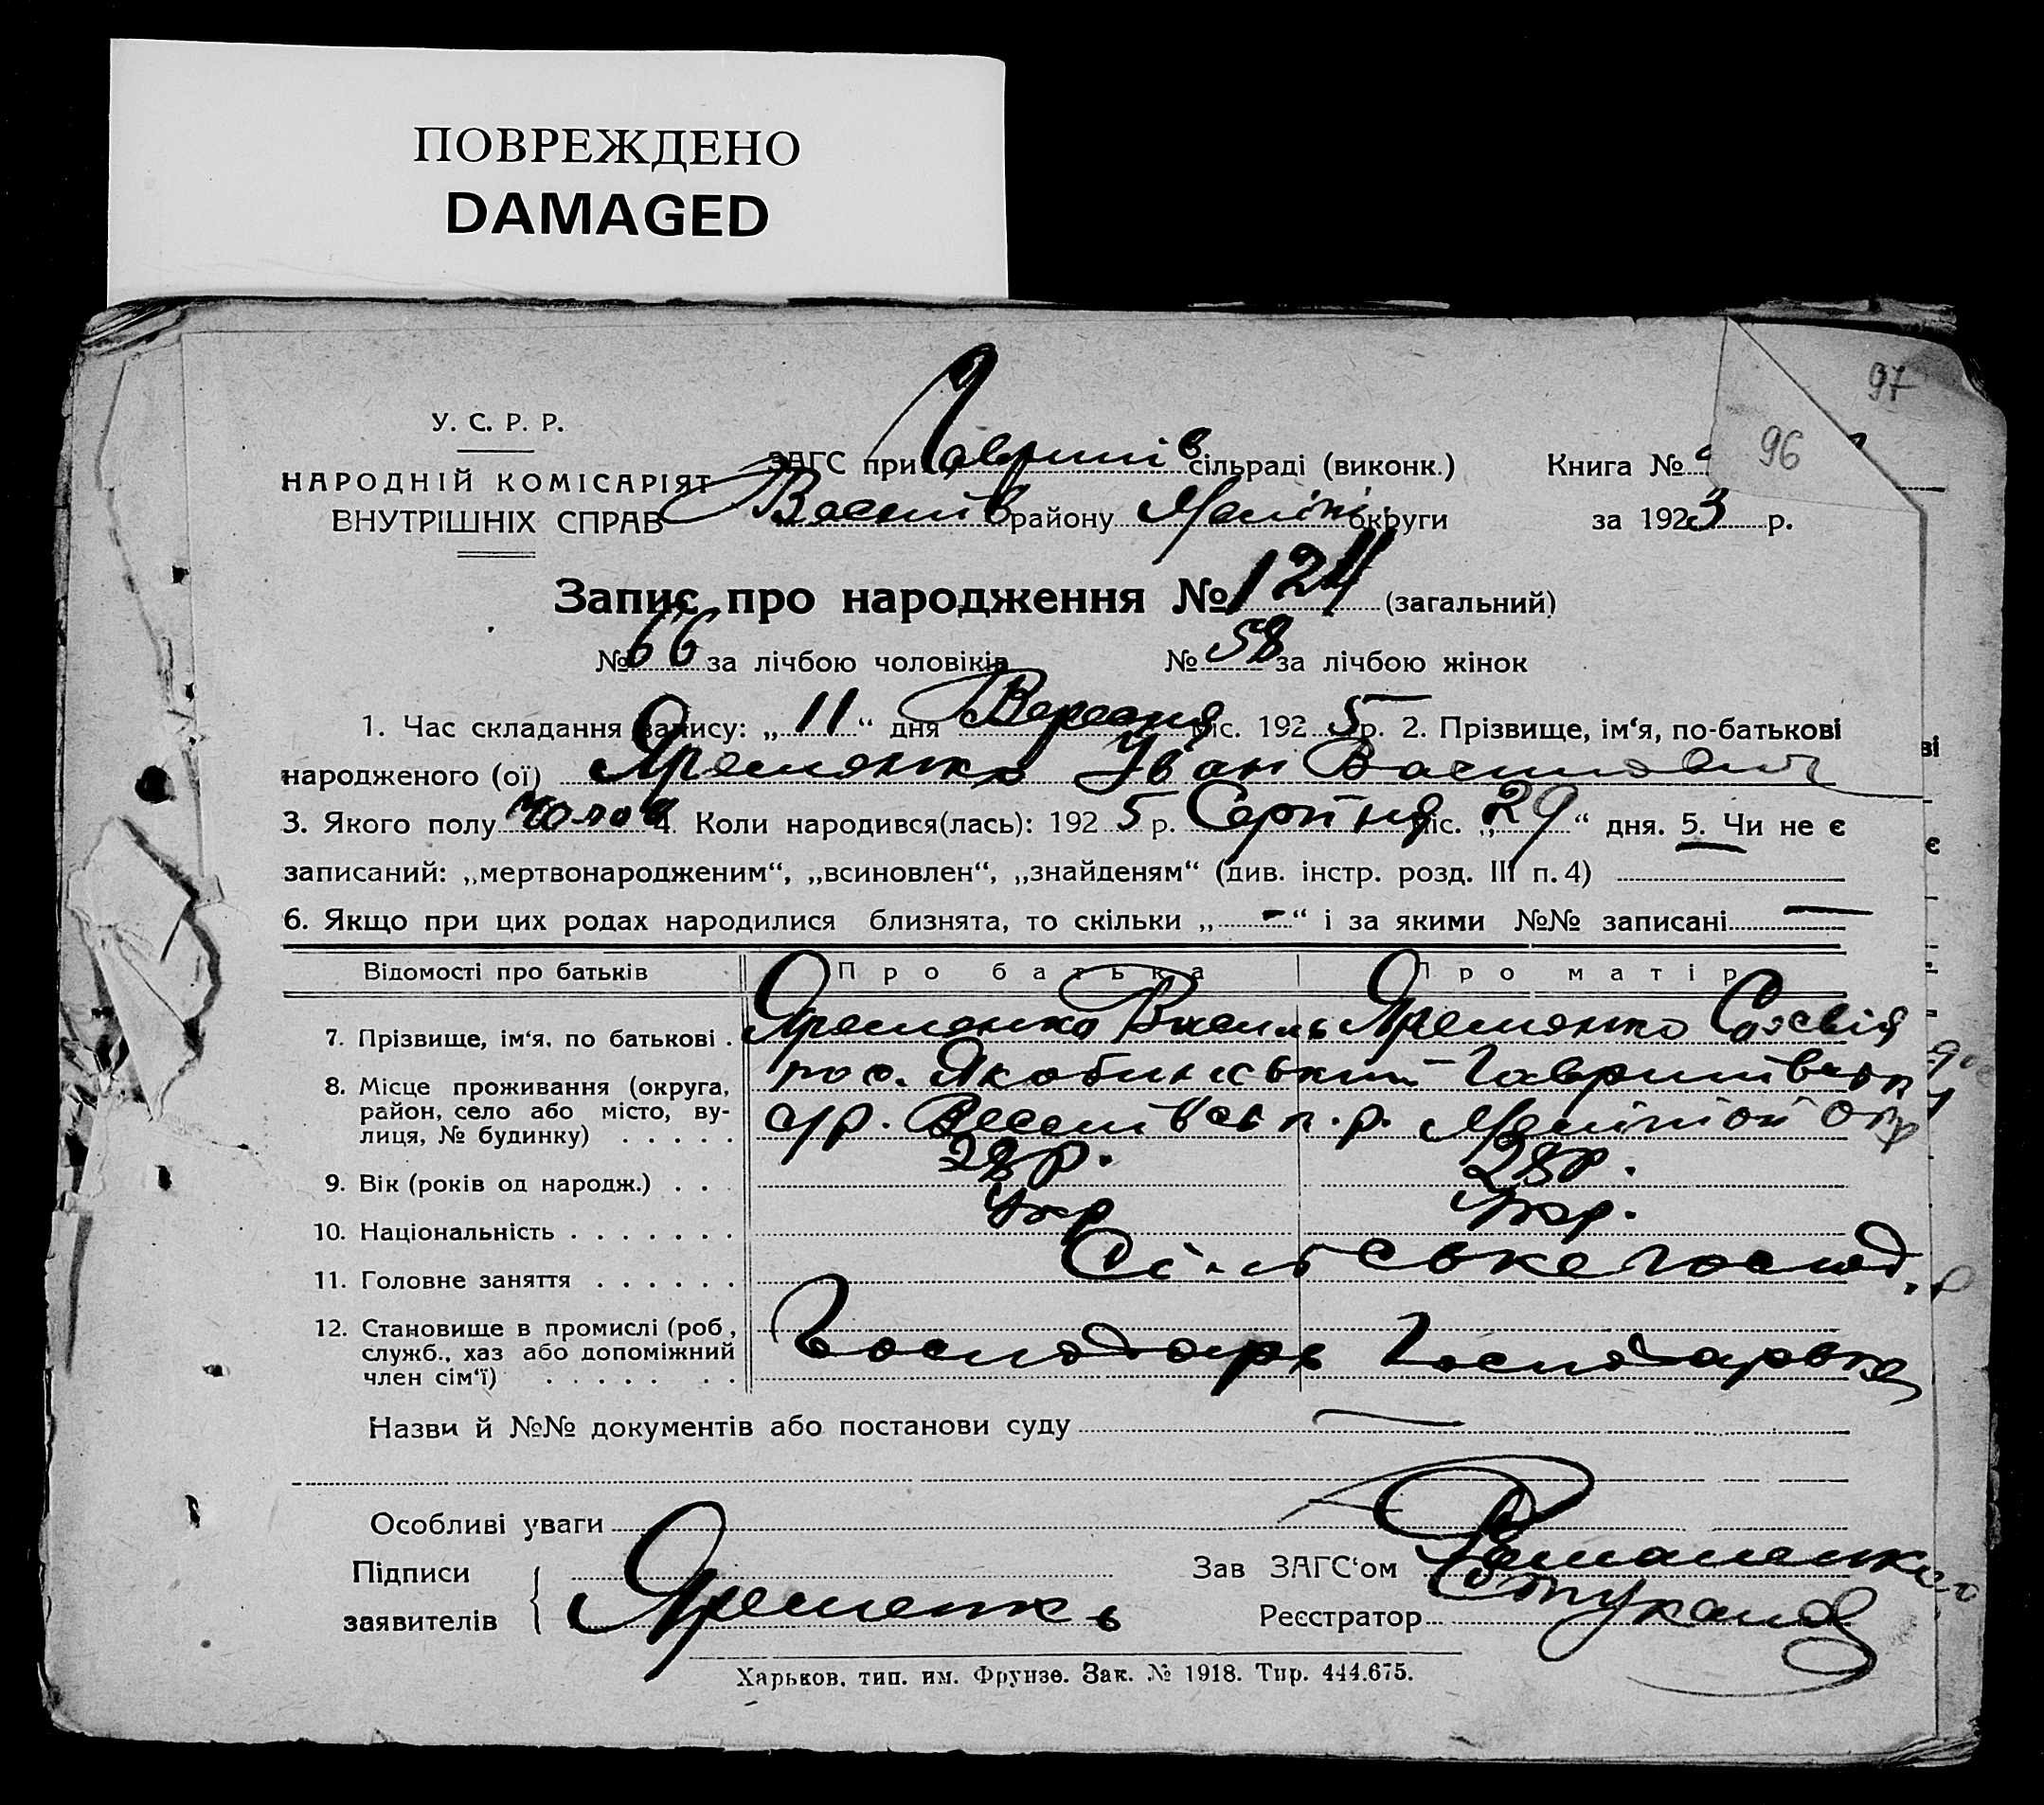 ПОВРЕЖДЕНО
DAMAGED
97
96
У. С. Р. Р.
НАРОДНІЙ КОМІСАРІЯТ
ВНУТРІШНІХ СПРАВ
ЗАГС при Гаврилів сільраді (виконк.)
Книга №
Весел району Меліт округи
за 1923 р.
Запис про народження № 124 (загальний)
№ 66 за лічбою чоловіків № 58 за лічбою жінок
1. Час складання запису: „ 11 “ дня Вересня міс. 192 5 р. 2. Прізвище, ім‘я, по-батькові
народженого (ої) Яременко Іван Василович
3. Якого полу чолов 4. Коли народився(лась): 192 5 р. Серпня міс. „ 29 “ дня. 5. Чи не є
записаний: „мертвонародженим“, „всиновлен“, „знайденям“ (див. інстр. розд. III п. 4)
6. Якщо при цих родах народилися близнята, то скільки „ - “ і за якими №№ записані —
Відомості про батьків Про батька Про матір
7. Прізвище, ім‘я, по батькові . Яременко Василь Яременко
8. Місце проживання (округа, район, село або місто, вулиця, № будинку) . . . . . пос. Якобинський Гаврилівськ
с/р. Веселівськ. р. Меліт окр
9. Вік (років од народж.) . . . 28 р. 28 р.
10. Національність . . . . . . . Укр Укр.
11. Головне заняття . . . . . . Сільське господ.
12. Становище в промислі (роб., служб., хаз або допоміжний член сім‘ї) . . . . . . . Господарь Господарька
Назви й №№ документів або постанови суду —
Особливі уваги
Підписи заявителів Яременкъ
Зав ЗАГС‘ом Романенко
Реєстратор
Харьков, тип. им. Фрунзе. Зак. № 1918. Тир. 444.675.